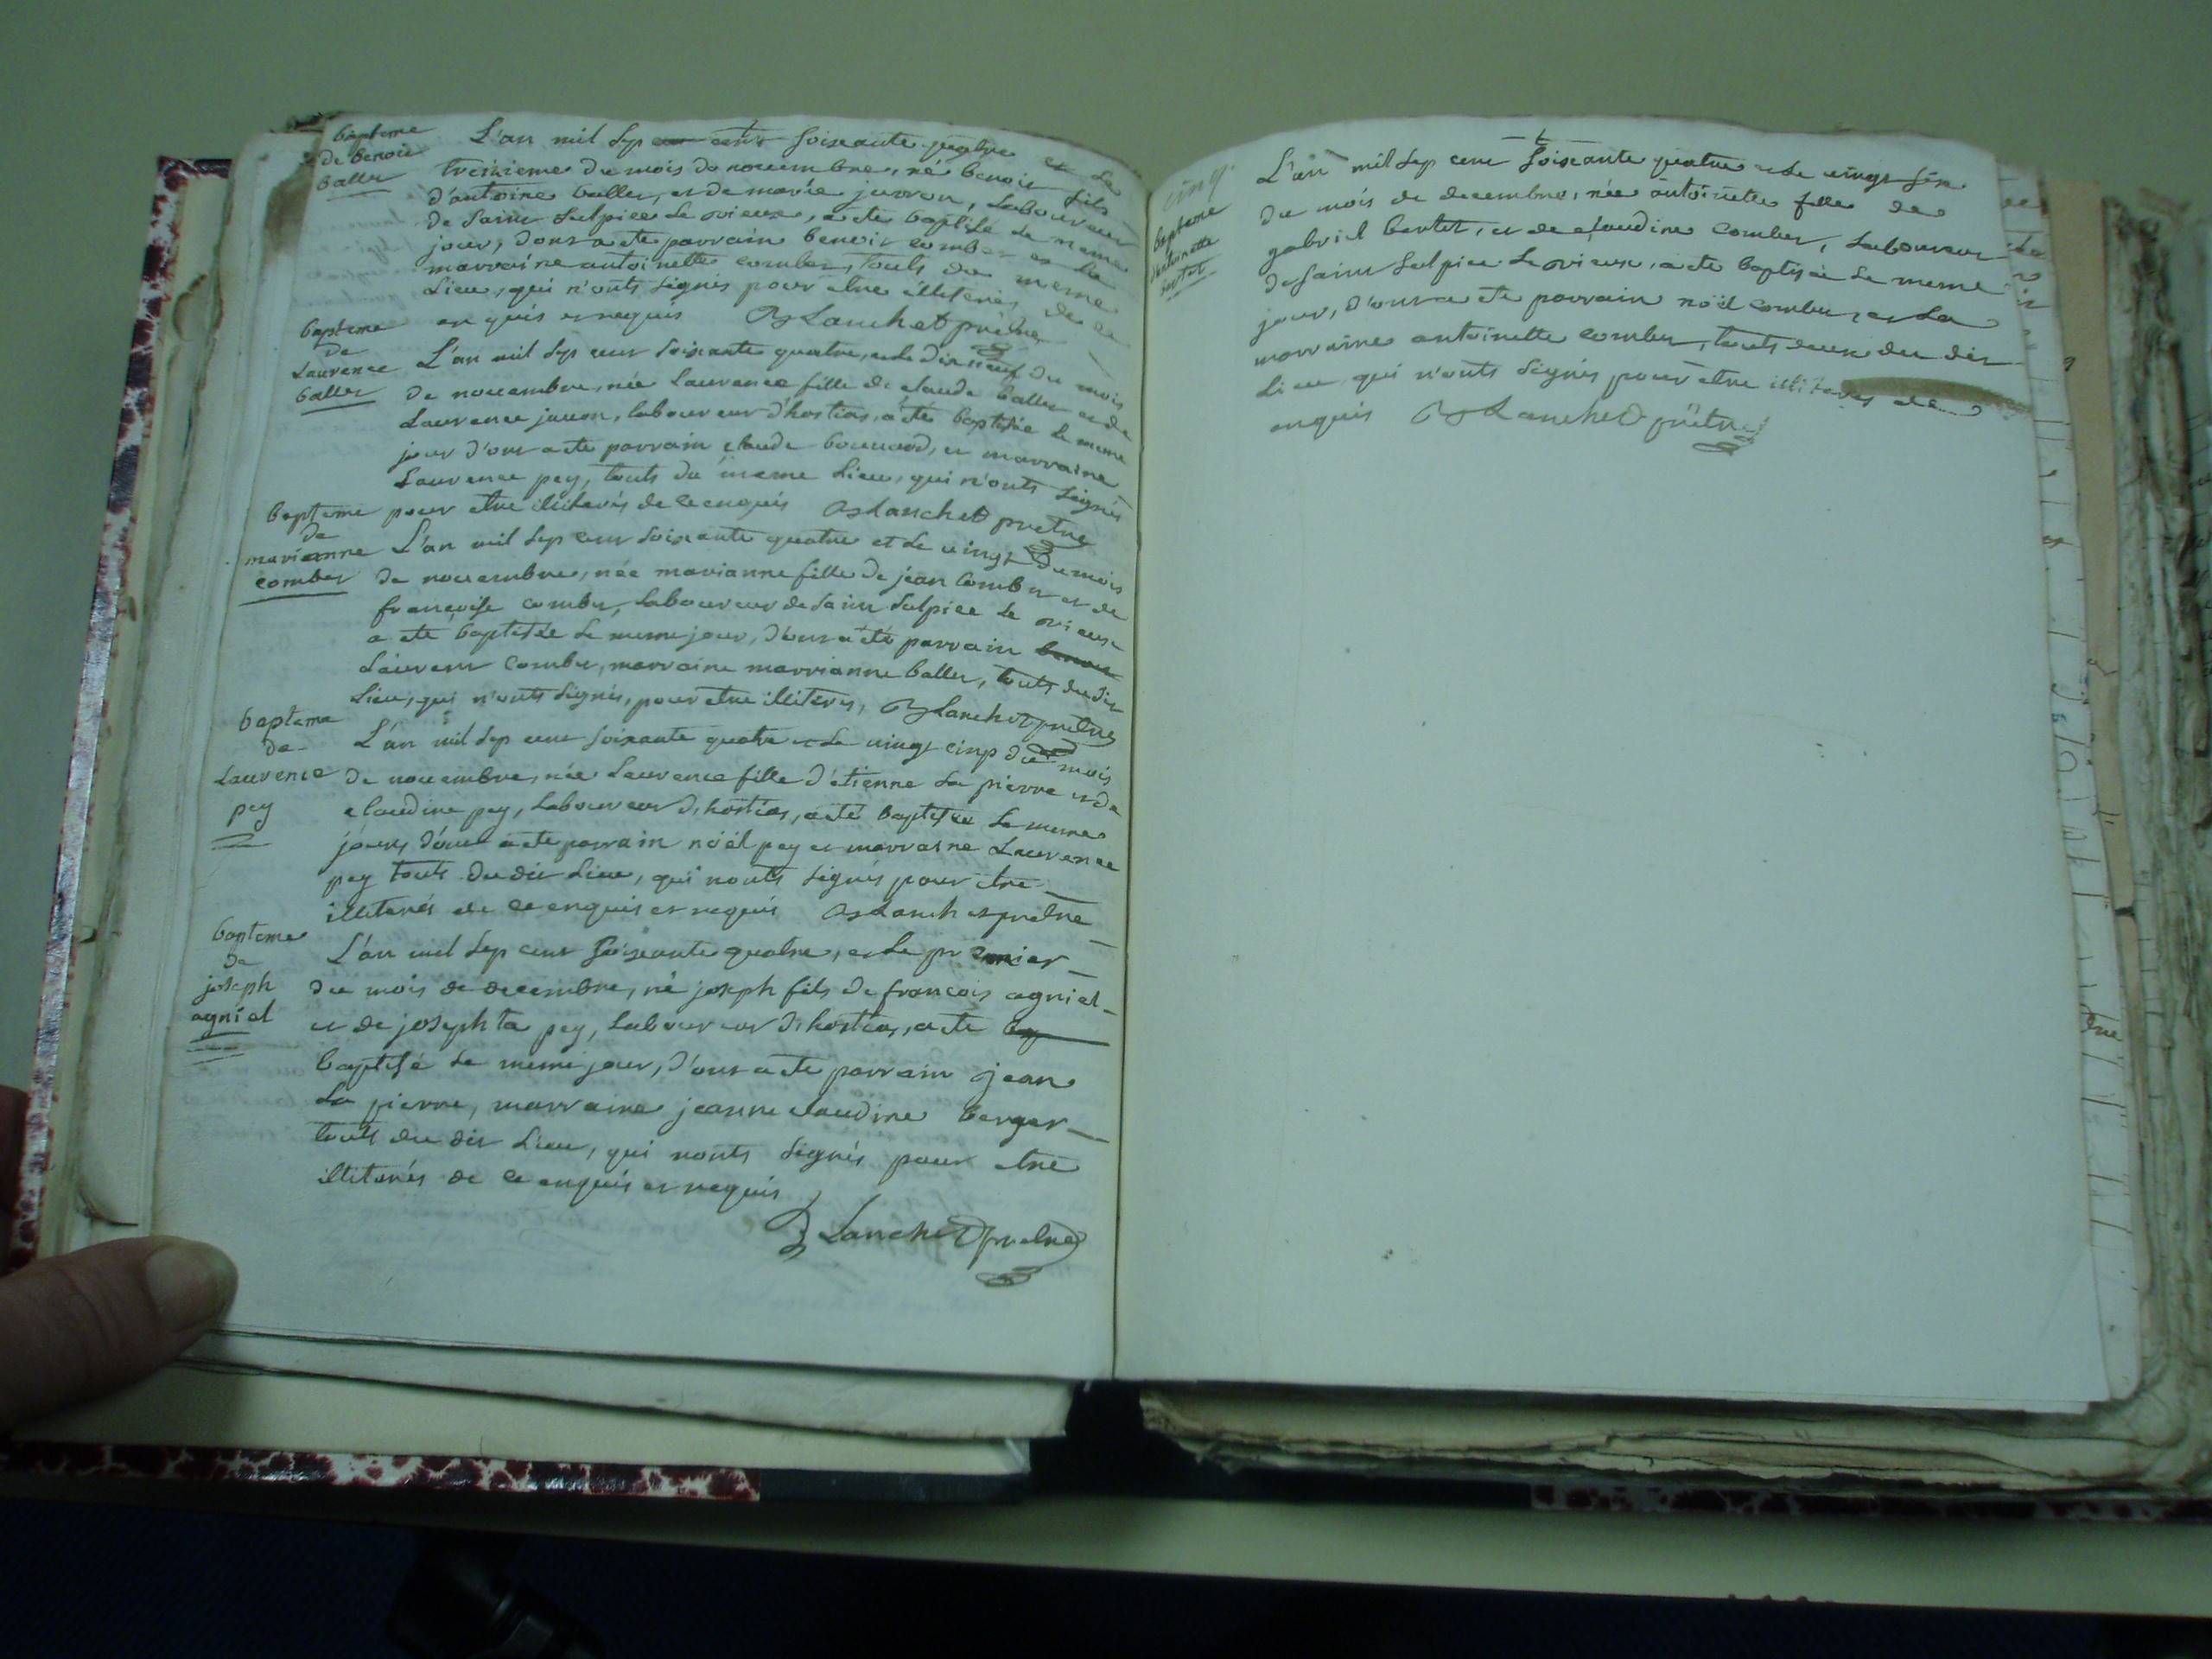 bapteme
de benoit
baller
L'an mil sep cents soixante quatre et le
treizieme du mois de novembre, né benoit fils
d'antoine baller, et de marie jurron, laboureur
de saint Sulpice le vieux, a ete baptisé le meme
jour, dont a ete parrain benoit comber et la
marraine antoinette comber, touts du meme
lieu, qui n'onts signés pour etre illiterés de ce
enquis et requis Blanchet prêtre
bapteme
de
Laurence
baller
L'an mil sep cent soixante quatre, et le dix neuf du mois
de novembre, née Laurence fille de claude baller et de
Laurence juron, laboureur d'hostias, a été baptisée le meme
jour d'ont a ete parrain claude bouvard, et marraine
Laurence pey, touts du meme lieu, qui n'onts signés
pour etre illiterés de ce enquis Blanchet pretre
bapteme
de
marianne
comber
L'an mil sep cent soixante quatre et le vingt du mois
de novembre, née marianne fille de jean comber et de
françoise comber, laboureur de saint Sulpice le vieux
a eté baptisée le meme jour, d'ont a été parrain benoit
Laurent comber, marraine marrianne baller, touts du dit
lieu, qui n'onts signés, pour etre illiterés, Blanchet pretre
bapteme
de
Laurence
pey
L'an mil sep cent soixante quatre et le vingt cinq du mois
de novembre, née Laurence fille d'etienne la pierre et de
claudine pey, laboureur d'hostias, a eté baptisée le meme
jours d'ont a ete parrain noël pey et marraine Laurence
pey touts du dit lieu, qui nonts signés pour etre
illiterés de ce enquis et requis Blanchet pretre
bapteme
de
joseph
agniel
L'an mil sep cent soixante quatre, et le premier
du mois de decembre, né joseph fils de francois agniel
et de josephta pey, laboureur d'hostias, a ete
baptisé le meme jour, d'ont a ete parrain jean
la pierre, marraine jeanne claudine berger
touts du dit lieu, qui nonts signés pour etre
illiterés de ce enquis et requis
Blanchet pretre
cinq
bapteme
d'antoinette
bertet
L'an mil sep cent soixante quatre et le vingt six
du mois de decembre, née antoinette fille de
gabriel bertet, et de claudine comber, laboureur
de saint Sulpice le vieux, a ete baptisée le meme
jour, d'ont a ete parrain noël comber, et la
marraine antoinette comber, touts deux du dit
lieu, qui n'onts signés pour etre illiterés de ce
enquis Blanchet prêtre